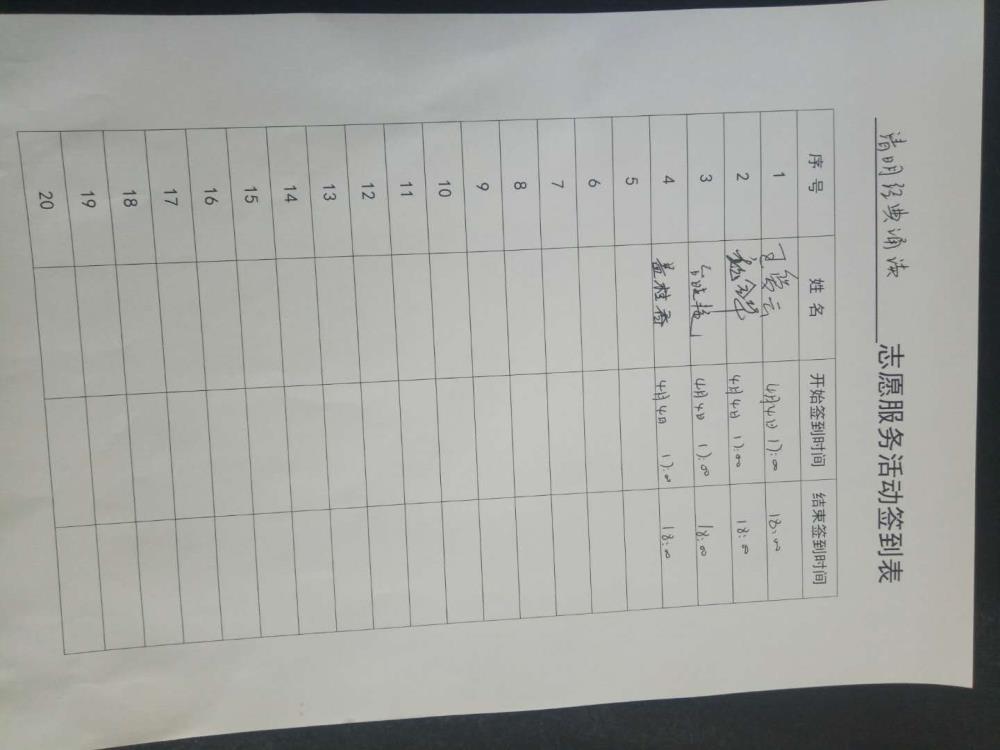 清明经典诵读 志愿服务活动签到表
序号 姓名 开始签到时间 结束签到时间
1 4月4日 17:00 18:00
2 4月4日 17:00 18:00
3 4月4日 17:00 18:00
4 黄桂香 4月4日 17:00 18:00
5
6
7
8
9
10
11
12
13
14
15
16
17
18
19
20